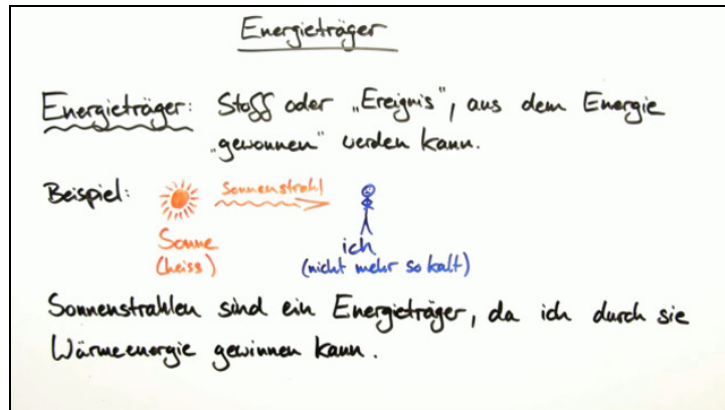 Energieträger
Energieträger: Stoff oder „Ereignis“, aus dem Energie
„gewonnen“ werden kann.
Beispiel: Sonnenstrahl
Sonne
(heiss)
ich
(nicht mehr so kalt)
Sonnenstrahlen sind ein Energieträger, da ich durch sie
Wärmeenergie gewinnen kann.